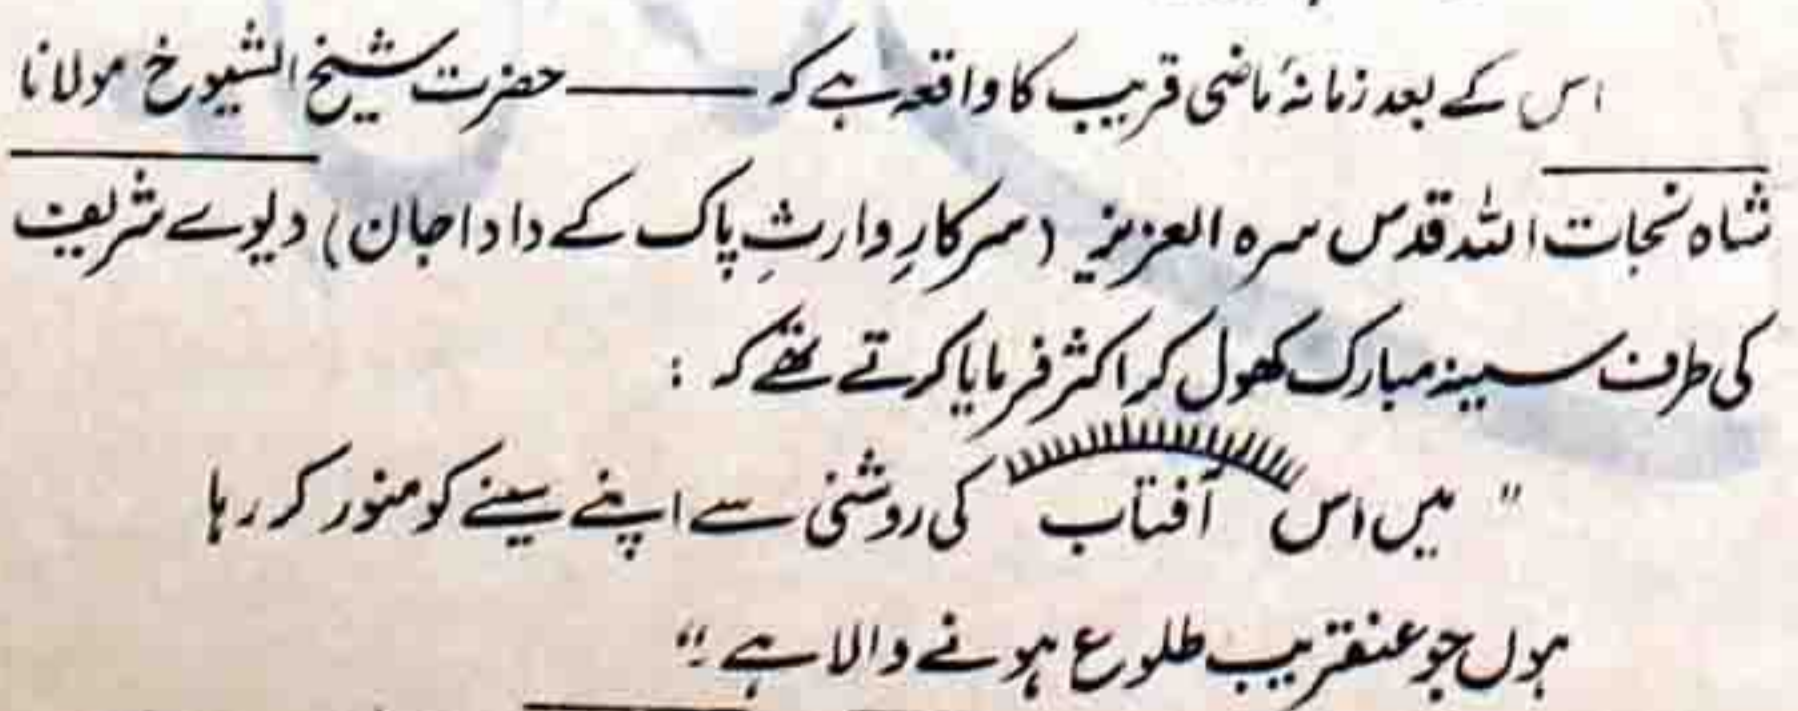 اس کے بعد زمانۂ ماضی قریب کا واقعہ ہے کہ ——— حضرت شیخ الشیوخ مولانا
شاہ نجات اللہ قدس سرہ العزیز (سرکارِ وارثِ پاک کے دادا جان) دیوے شریف
کی طرف سینہ مبارک کھول کر اکثر فرمایا کرتے تھے کہ :
" میں اس آفتاب کی روشنی سے اپنے سینے کو منور کر رہا
ہوں جو عنقریب طلوع ہونے والا ہے ۔"